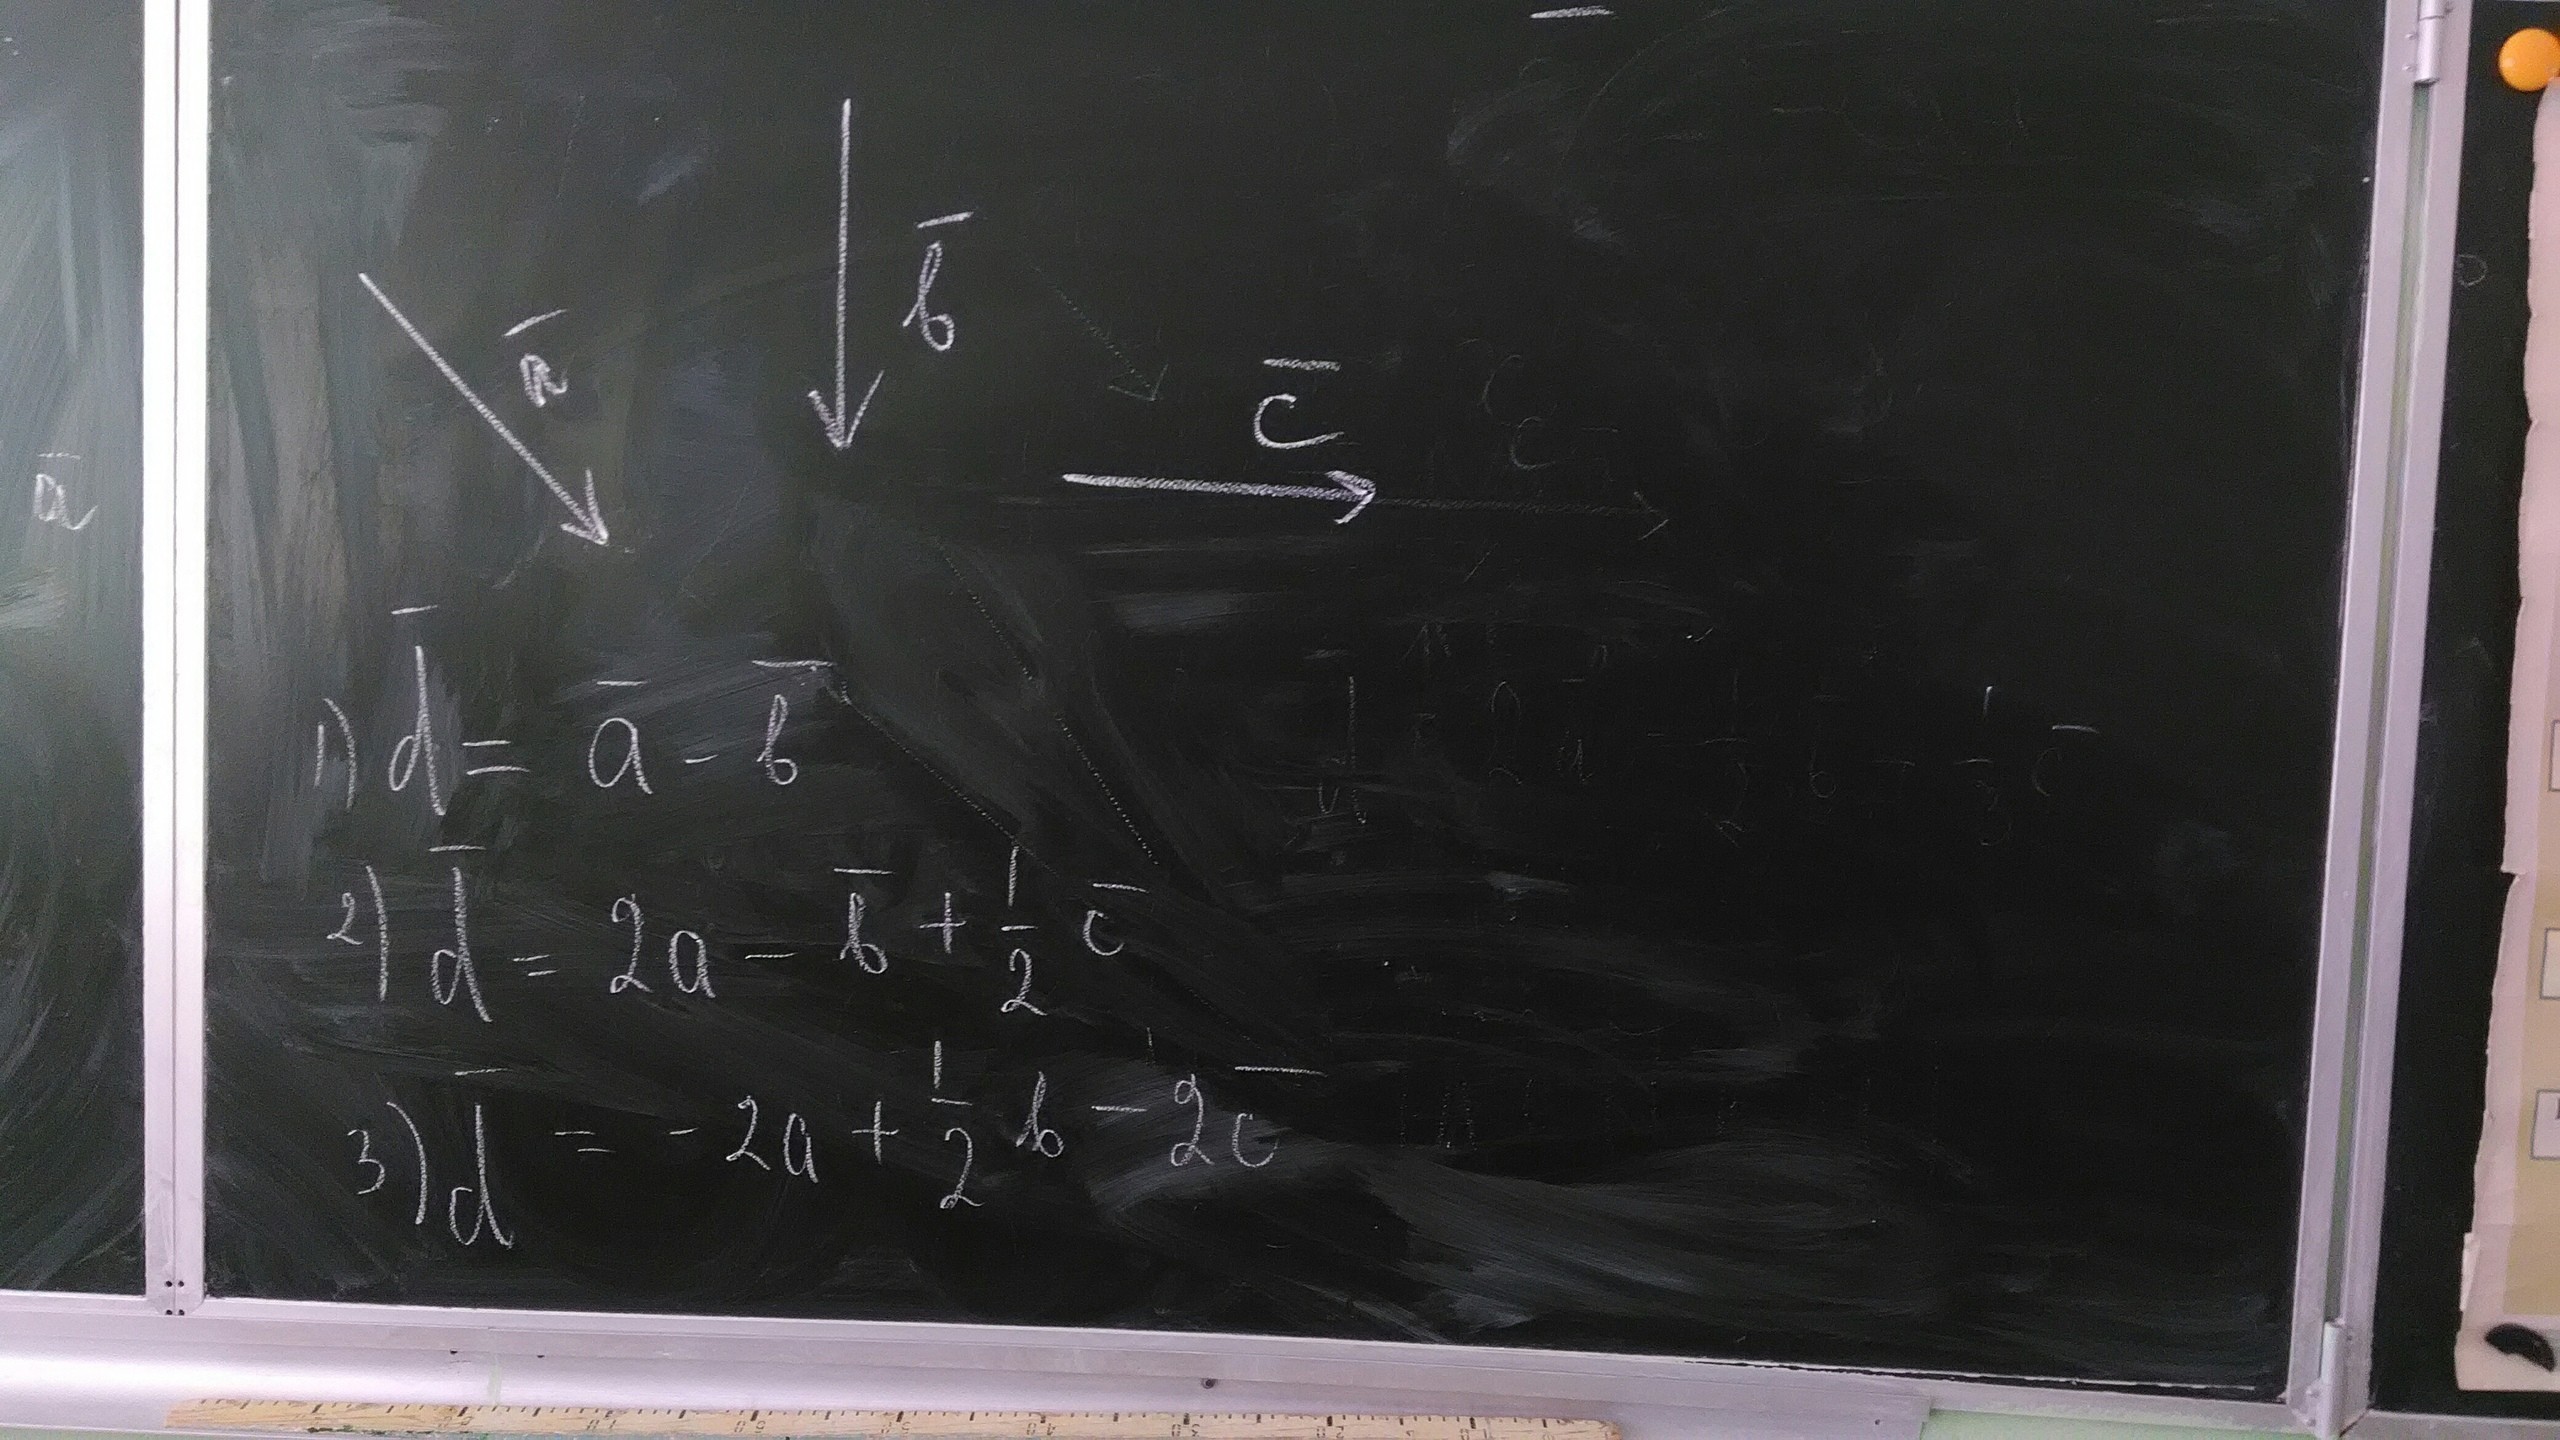 b̄
ā
c̄
ā
1) d̄ = ā - b̄
2) d̄ = 2a - b̄ + 1/2 c̄
3) d̄ = - 2a + 1/2 b - 2c̄